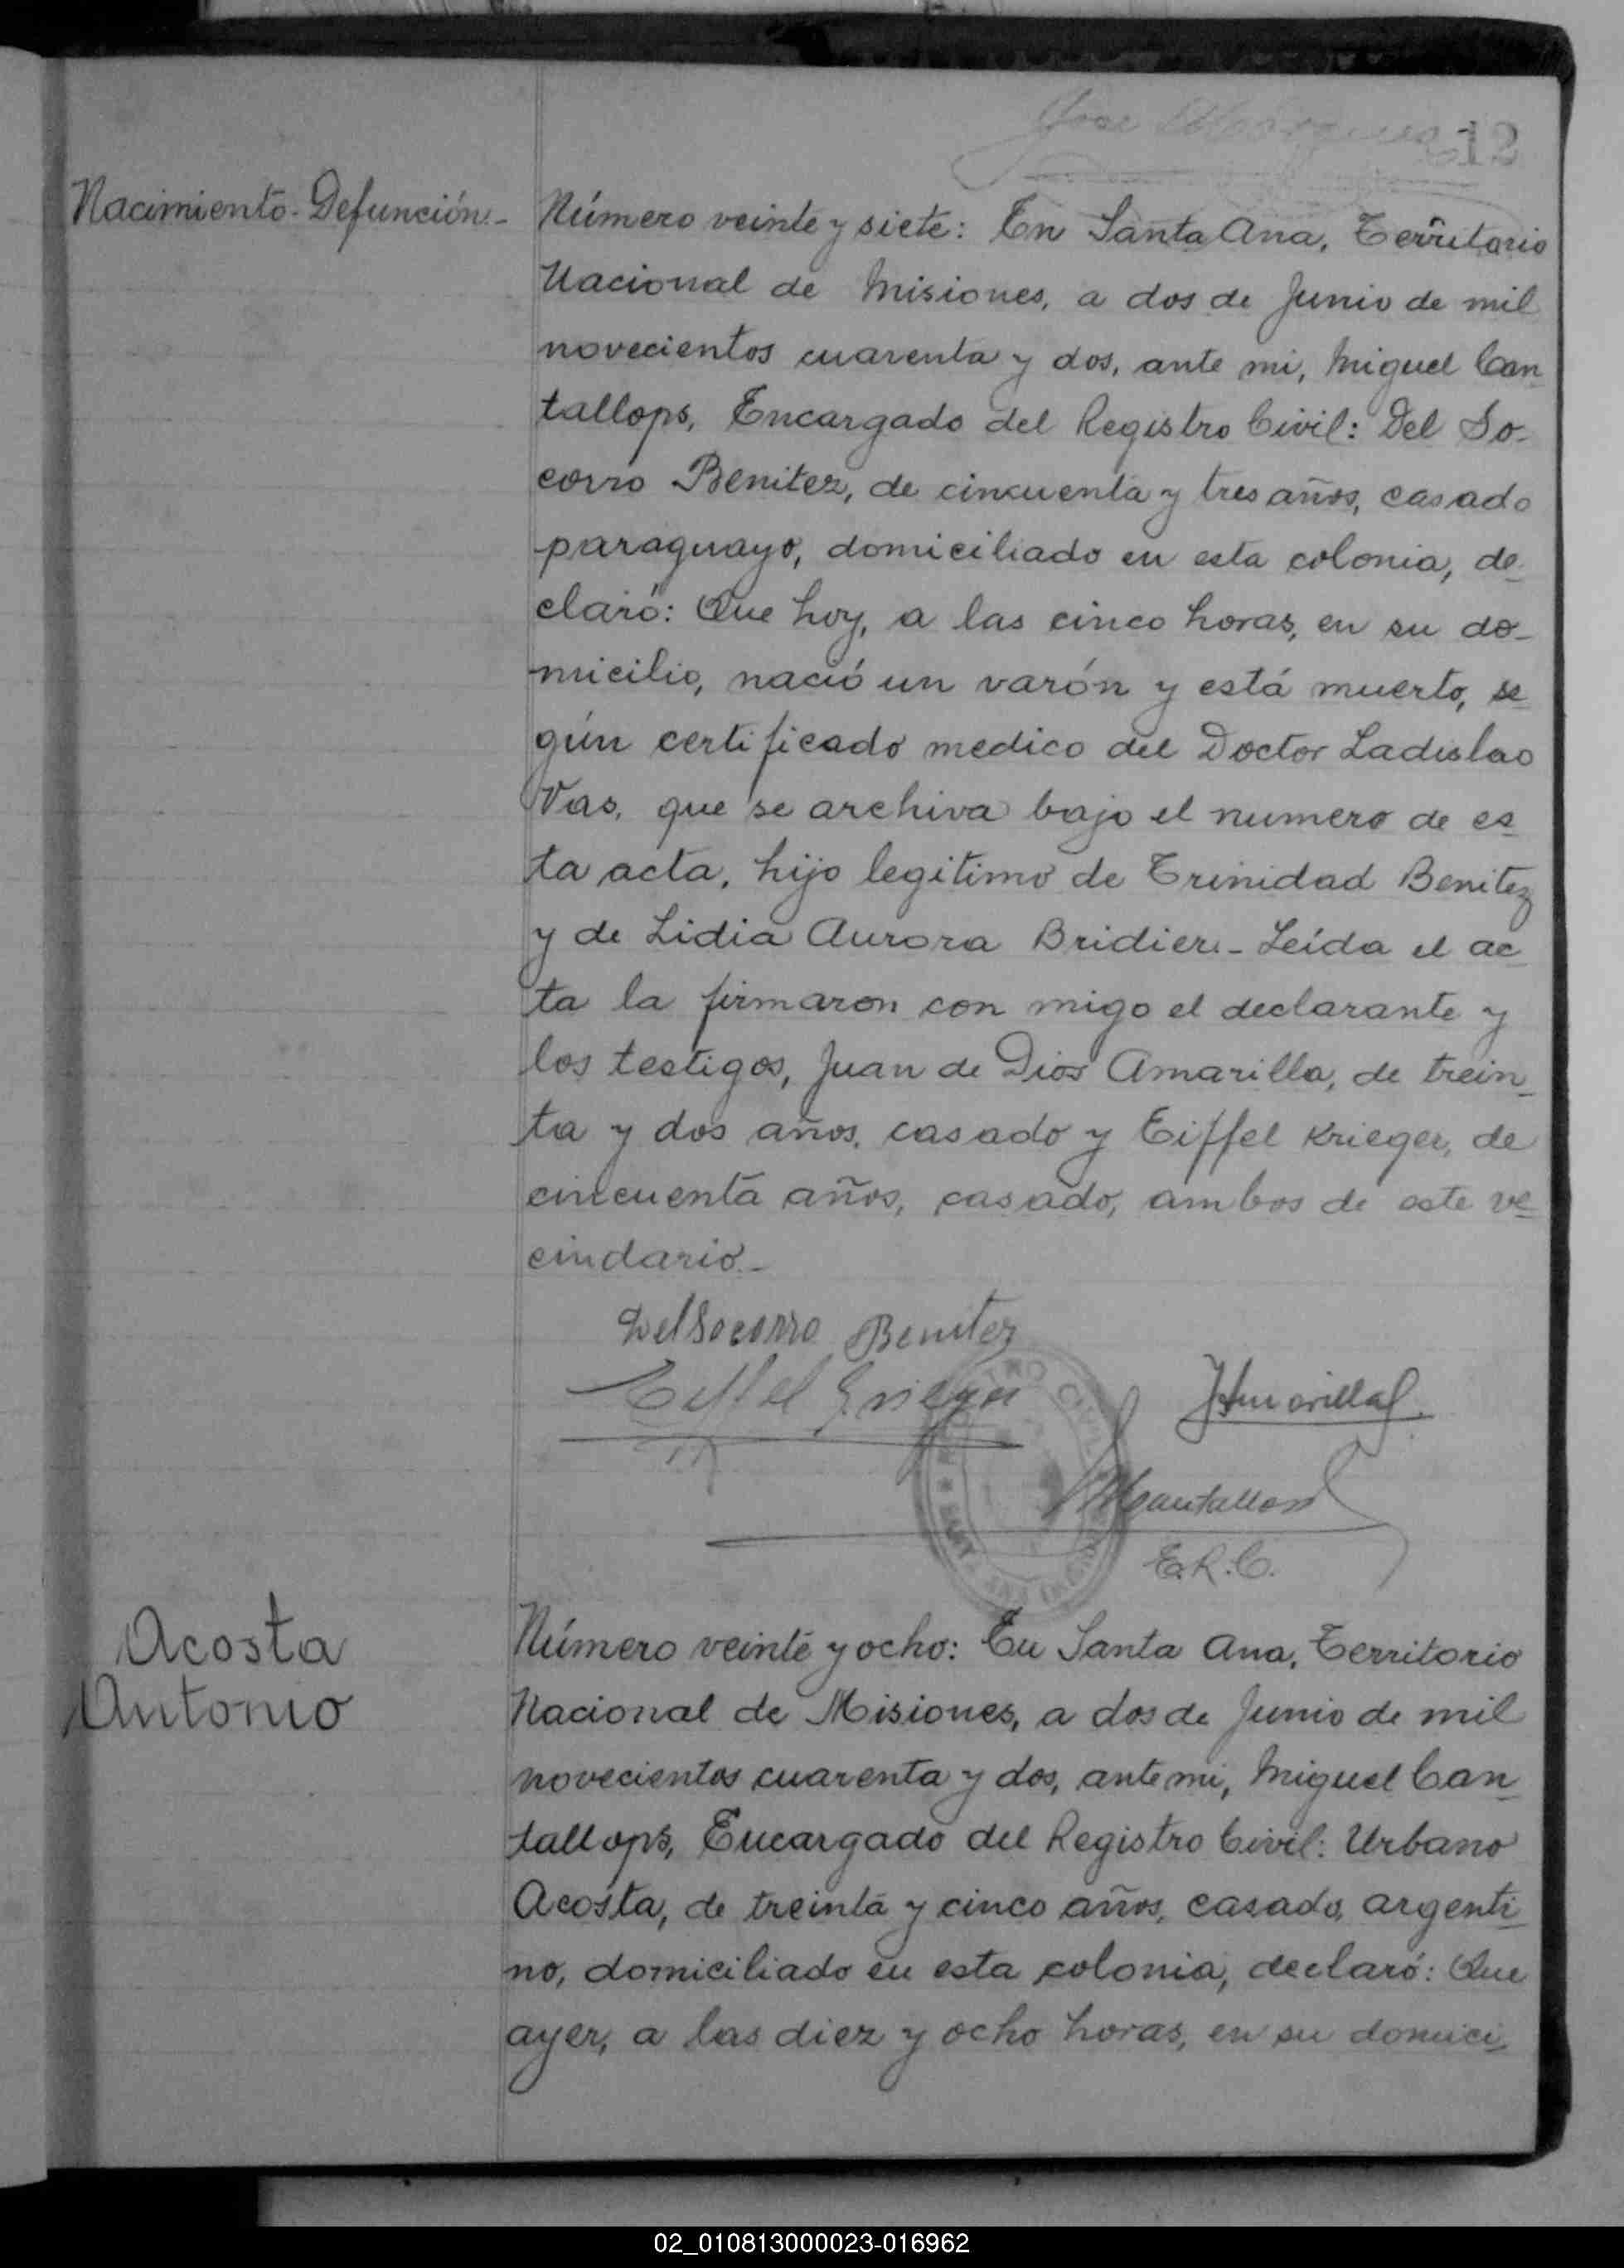 12
Nacimiento-Defunción.-
Número veinte y siete: En Santa Ana, Territorio
Nacional de Misiones, a dos de Junio de mil
novecientos cuarenta y dos, ante mi, Miguel Can
tallops, Encargado del Registro Civil: Del So-
corro Benitez, de cincuenta y tres años, casado
paraguayo, domiciliado en esta colonia, de-
claró: Que hoy, a las cinco horas, en su do-
micilio, nació un varón y está muerto, se
gún certificado medico del Doctor Ladislao
Vas, que se archiva bajo el numero de es
ta acta, hijo legitimo de Trinidad Benitez
y de Lidia Aurora Bridier.- Leída el ac
ta la firmaron con migo el declarante y
los testigos, Juan de Dios Amarilla, de trein
ta y dos años, casado y Eiffel Krieger, de
cincuenta años, casado, ambos de este ve
cindario.-
Del Socorro Benitez
Eiffel Krieger
JAmarilla
MCantallops
E.R.C.
Acosta
Antonio
Número veinte y ocho: En Santa Ana, Territorio
Nacional de Misiones, a dos de Junio de mil
novecientos cuarenta y dos, ante mi, Miguel Can
tallops, Encargado del Registro Civil: Urbano
Acosta, de treinta y cinco años, casado, argenti
no, domiciliado en esta colonia, declaró: Que
ayer, a las diez y ocho horas, en su domici
02_010813000023-016962